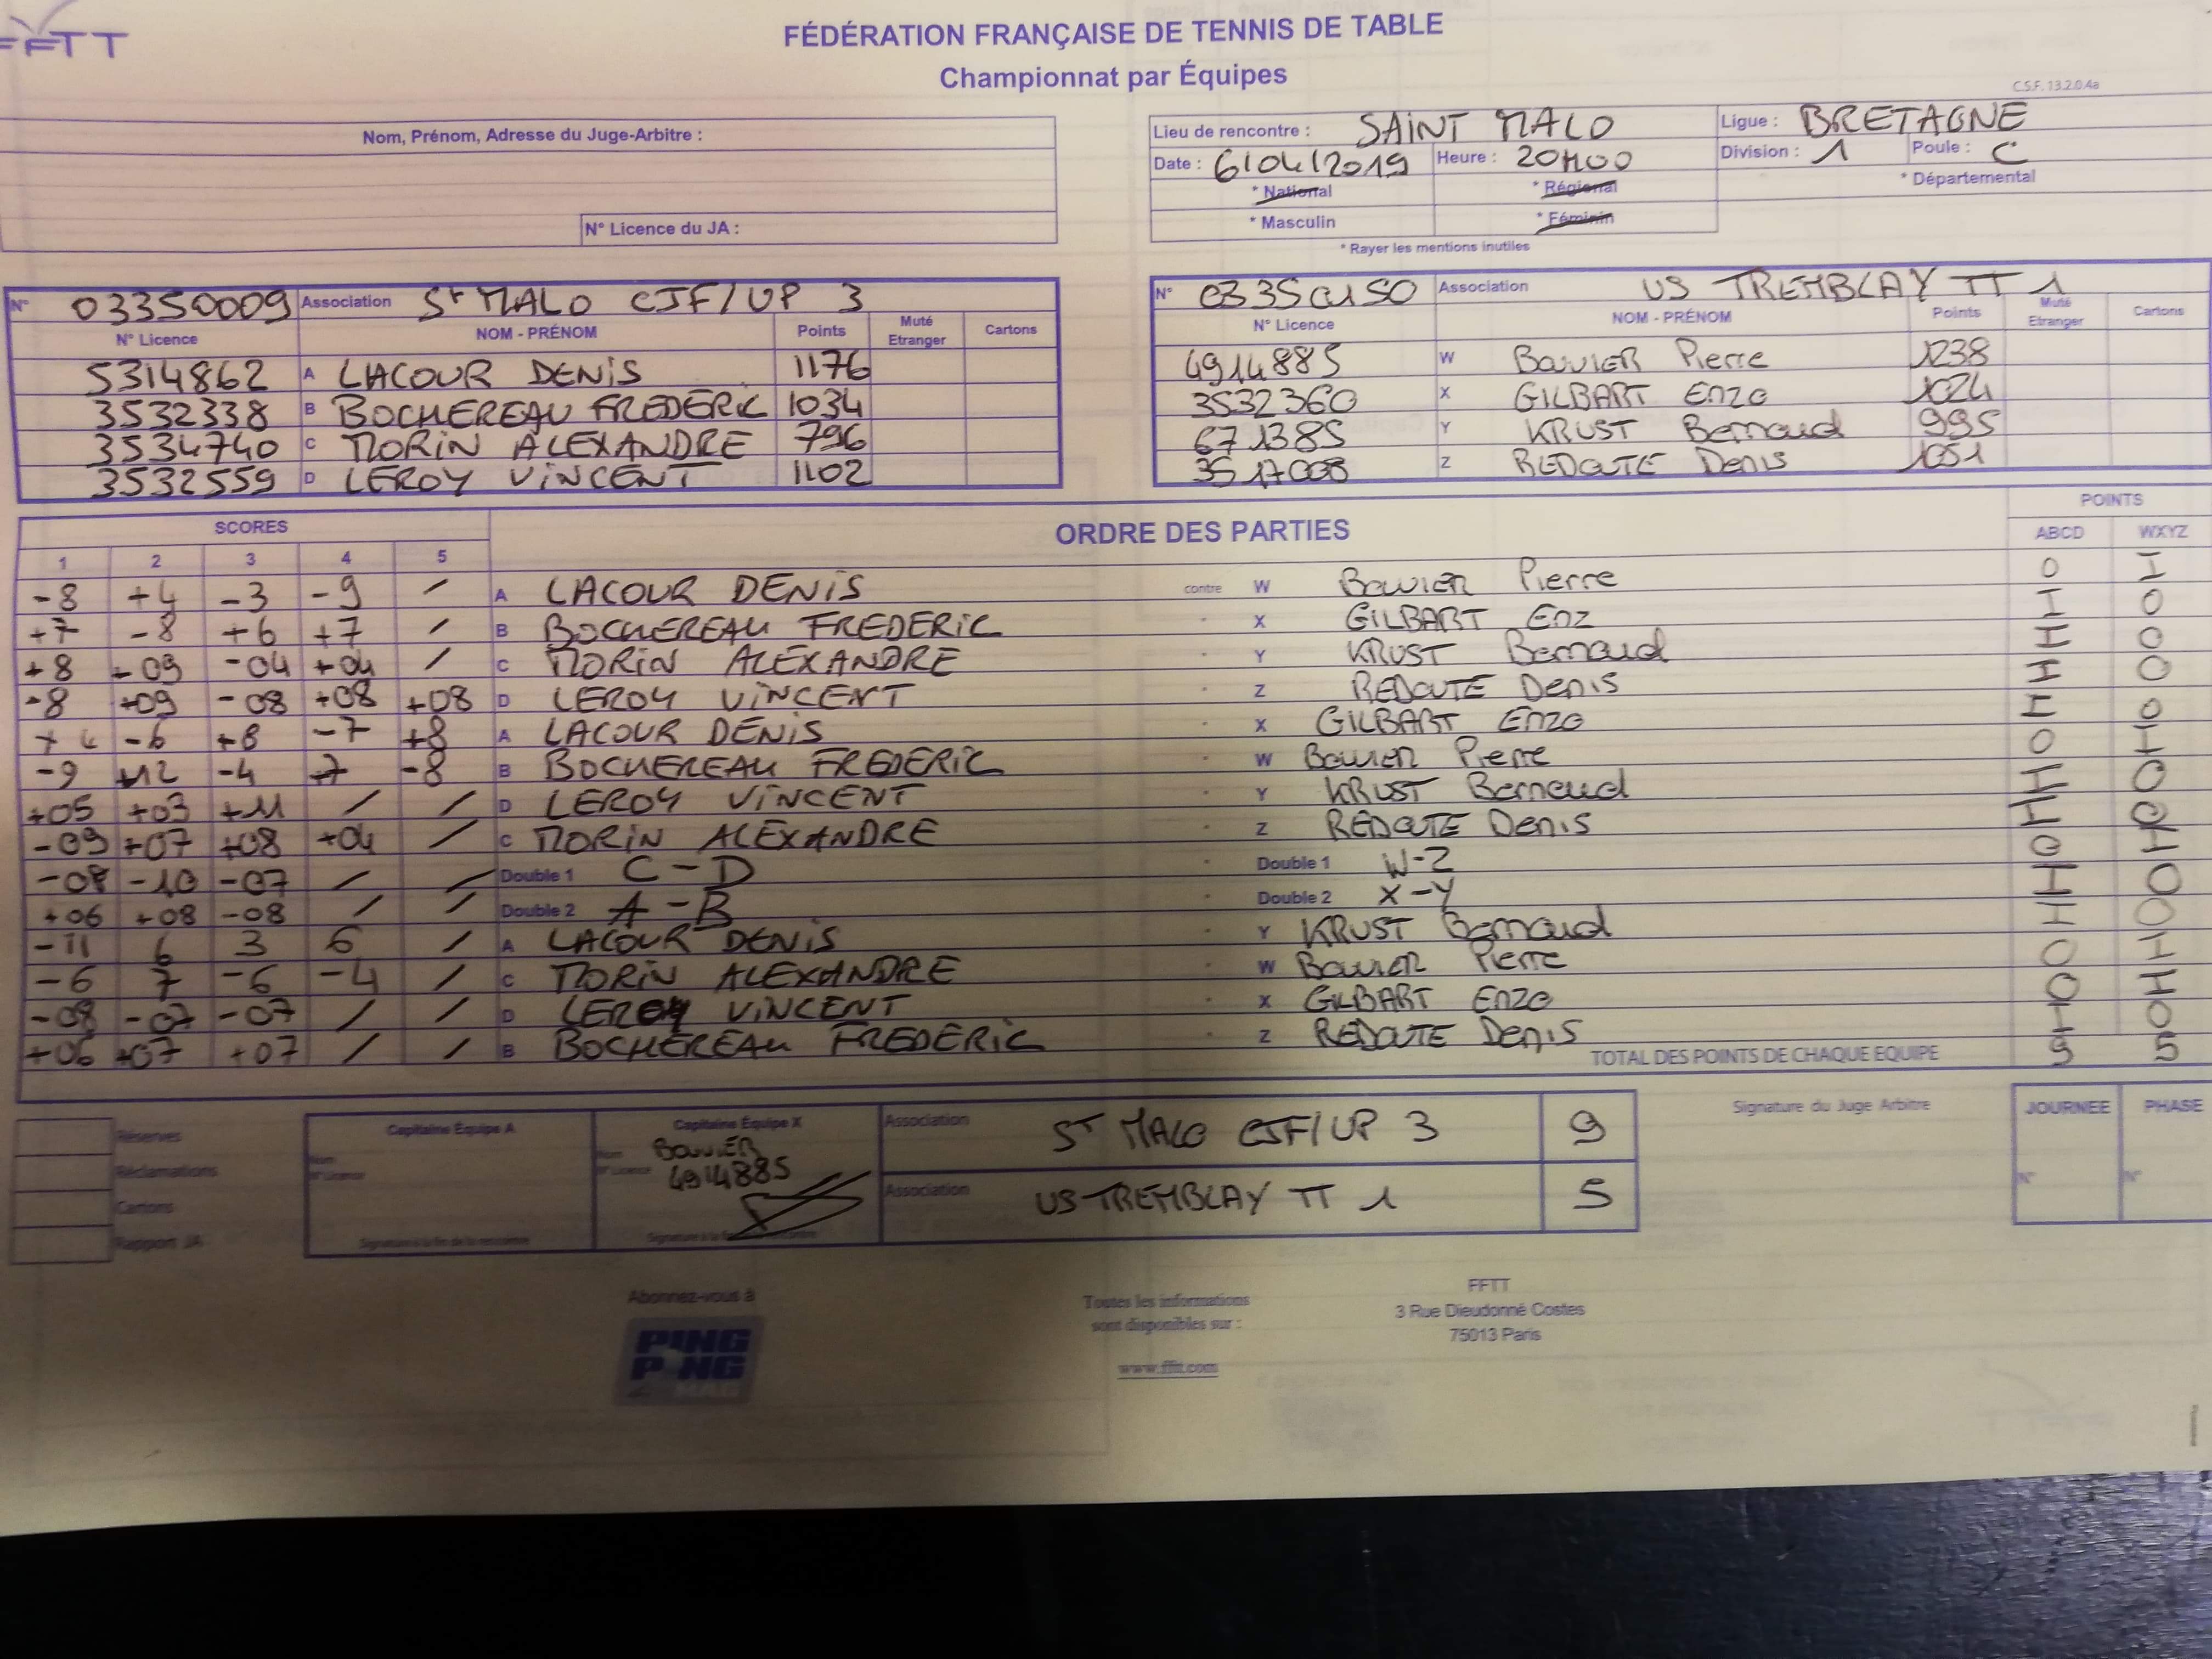 FFTT
FÉDÉRATION FRANÇAISE DE TENNIS DE TABLE
Championnat par Équipes
C.S.F. 13.2.0.4a
Nom, Prénom, Adresse du Juge-Arbitre :
N° Licence du JA :
Lieu de rencontre : SAINT MALO Ligue : BRETAGNE
Date : 6/04/2019 Heure : 20H00 Division : 1 Poule : C
* National * Régional * Départemental
* Masculin * Féminin
* Rayer les mentions inutiles
N° 03350009 Association St MALO CJF/UP 3
N° Licence NOM - PRÉNOM Points Muté Etranger Cartons
5314862 A LACOUR DENIS 1176
3532338 B BOCHEREAU FREDERIC 1034
3534740 C MORIN ALEXANDRE 796
3532559 D LEROY VINCENT 1102
N° Association US TREMBLAY TT 1
N° Licence NOM - PRÉNOM Points Muté Etranger Cartons
4914885 W BOUVIER Pierre 1238
3532360 X GILBART Enzo 1024
671385 Y KRUST Bernaud 995
3517008 Z REDOUTE Denis 1051
SCORES ORDRE DES PARTIES POINTS
1 2 3 4 5 ABCD WXYZ
-8 +4 -3 -9 / A LACOUR DENIS contre W Bouvier Pierre 0 I
+7 -8 +6 +7 / B BOCHEREAU FREDERIC X GILBART Enz I 0
+8 +09 -04 +04 / C MORIN ALEXANDRE Y KRUST Bernaud I 0
-8 +09 -08 +08 +08 D LEROY VINCENT Z REDOUTE Denis I 0
-6 +8 -7 +8 A LACOUR DENIS X GILBART Enzo I 0
-9 +12 -4 -8 B BOCHEREAU FREDERIC W Bouvier Pierre 0 I
+05 +03 +11 / / D LEROY VINCENT Y KRUST Bernaud I 0
-09 +07 +08 +04 / C MORIN ALEXANDRE Z REDOUTE Denis I 0
-08 -10 -07 / / Double 1 C-D Double 1 W-Z 0 I
+06 +08 -08 / / Double 2 A-B Double 2 X-Y I 0
-11 6 3 6 / A LACOUR DENIS Y KRUST Bernaud I 0
-6 7 -6 -4 / C MORIN ALEXANDRE W Bouvier Pierre 0 I
-08 -07 -07 / / D LEROY VINCENT X GILBART Enzo 0 I
+06 +07 +07 / / B BOCHEREAU FREDERIC Z REDOUTE Denis I 0
TOTAL DES POINTS DE CHAQUE EQUIPE 9 5
Réserves
Réclamations
Cartons
Rapport JA
Capitaine Équipe A
Nom
N° Licence
Signature à la fin de la rencontre
Capitaine Équipe X
Nom BOUVIER
N° Licence 4914885
Association ST MALO CJF/UP 3 9
Association US TREMBLAY TT 1 5
Signature du Juge Arbitre
JOURNEE PHASE
N° N°
Abonnez-vous à
PING PONG MAG
Toutes les informations
sont disponibles sur :
www.fftt.com
FFTT
3 Rue Dieudonné Costes
75013 Paris